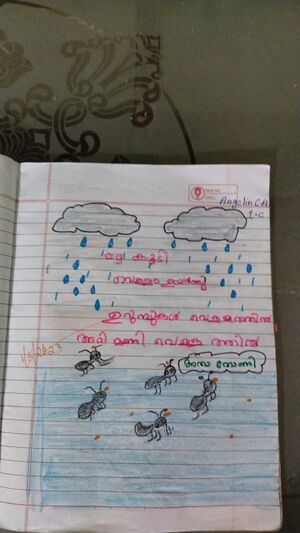 Angelin C.A
1-C
മഴ കൂടി
വെള്ളം ഉയർന്നു
ഉറുമ്പുകൾ വെള്ളത്തിൽ
അരി മണി വെള്ളത്തിൽ